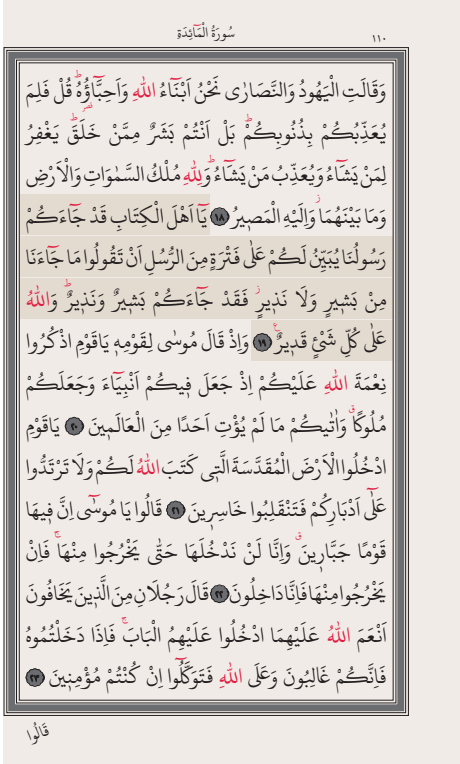 سُورَةُ الْمَٓائِدَةِ
١١٠
وَقَالَتِ الْيَهُودُ وَالنَّصَارٰى نَحْنُ اَبْنَٓاءُ اللّٰهِ وَاَحِبَّٓاؤُ۬هُۜ قُلْ فَلِمَ
يُعَذِّبُكُمْ بِذُنُوبِكُمْۜ بَلْ اَنْتُمْ بَشَرٌ مِمَّنْ خَلَقَۜ يَغْفِرُ
لِمَنْ يَشَٓاءُ وَيُعَذِّبُ مَنْ يَشَٓاءُۜ وَلِلّٰهِ مُلْكُ السَّمٰوَاتِ وَالْاَرْضِ
وَمَا بَيْنَهُمَاۘ وَاِلَيْهِ الْمَص۪يرُ ١٨ يَٓا اَهْلَ الْكِتَابِ قَدْ جَٓاءَكُمْ
رَسُولُنَا يُبَيِّنُ لَكُمْ عَلٰى فَتْرَةٍ مِنَ الرُّسُلِ اَنْ تَقُولُوا مَا جَٓاءَنَا
مِنْ بَش۪يرٍ وَلَا نَذ۪يرٍۘ فَقَدْ جَٓاءَكُمْ بَش۪يرٌ وَنَذ۪يرٌۜ وَاللّٰهُ
عَلٰى كُلِّ شَيْءٍ قَد۪يرٌ۟ ١٩ وَاِذْ قَالَ مُوسٰى لِقَوْمِه۪ يَاقَوْمِ اذْكُرُوا
نِعْمَةَ اللّٰهِ عَلَيْكُمْ اِذْ جَعَلَ ف۪يكُمْ اَنْبِيَٓاءَ وَجَعَلَكُمْ
مُلُوكًاۗ وَاٰتٰيكُمْ مَا لَمْ يُؤْتِ اَحَدًا مِنَ الْعَالَم۪ينَ ٢٠ يَاقَوْمِ
ادْخُلُوا الْاَرْضَ الْمُقَدَّسَةَ الَّت۪ي كَتَبَ اللّٰهُ لَكُمْ وَلَا تَرْتَدُّوا
عَلٰٓى اَدْبَارِكُمْ فَتَنْقَلِبُوا خَاسِر۪ينَ ٢١ قَالُوا يَا مُوسٰٓى اِنَّ ف۪يهَا
قَوْمًا جَبَّار۪ينَۗ وَاِنَّا لَنْ نَدْخُلَهَا حَتّٰى يَخْرُجُوا مِنْهَاۚ فَاِنْ
يَخْرُجُوا مِنْهَا فَاِنَّا دَاخِلُونَ ٢٢ قَالَ رَجُلَانِ مِنَ الَّذ۪ينَ يَخَافُونَ
اَنْعَمَ اللّٰهُ عَلَيْهِمَا ادْخُلُوا عَلَيْهِمُ الْبَابَۚ فَاِذَا دَخَلْتُمُوهُ
فَاِنَّكُمْ غَالِبُونَ وَعَلَى اللّٰهِ فَتَوَكَّلُٓوا اِنْ كُنْتُمْ مُؤْمِن۪ينَ ٢٣
قَالُوا